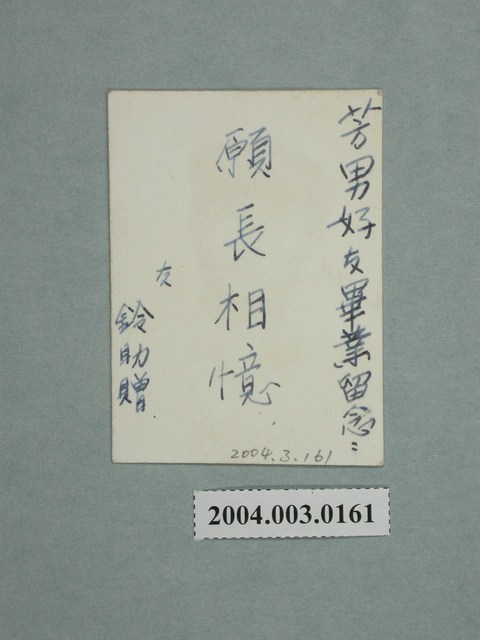 芳男好友畢業留念:
願長相憶.
友
鈴助贈.
2004.3.161
2004.003.0161